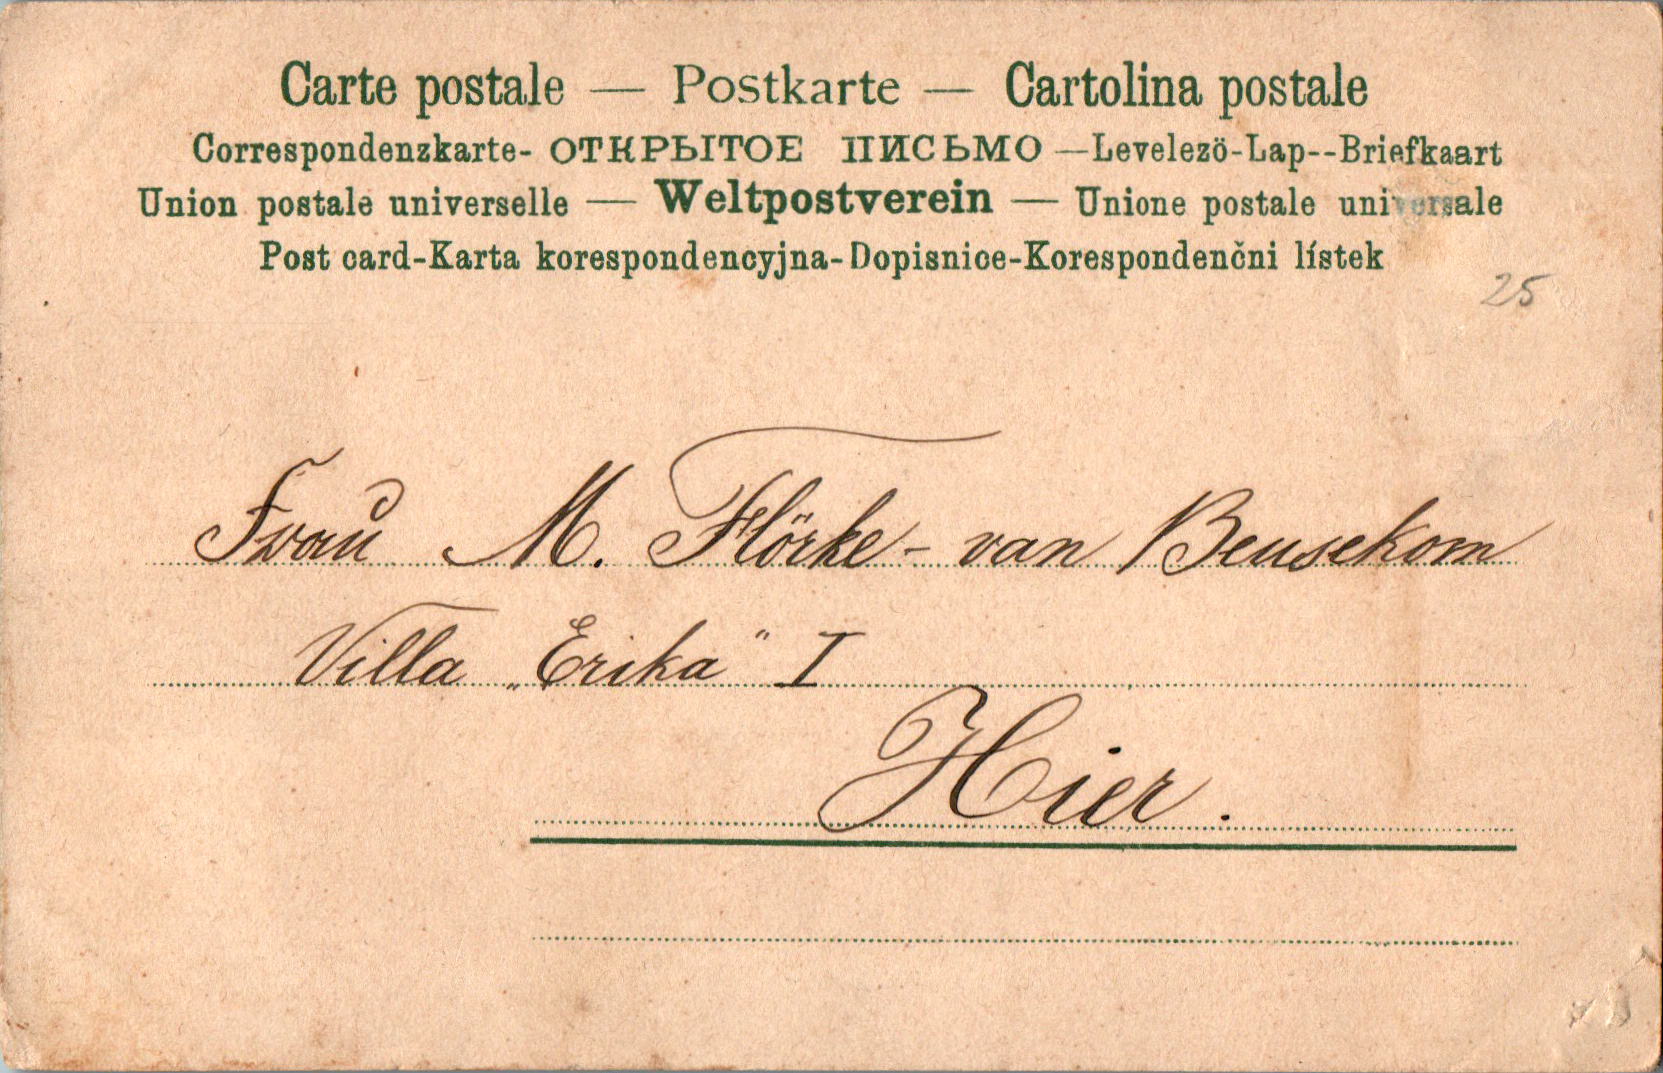 Carte postale — Postkarte — Cartolina postale
Correspondenzkarte- ОТКРЫТОЕ ПИСЬМО —Levelezö-Lap--Briefkaart
Union postale universelle — Weltpostverein — Unione postale universale
Post card-Karta korespondencyjna-Dopisnice-Korespondenčni lístek
25
Frau M. Flörke - van Beusekom
Villa „Erika" I
Hier.